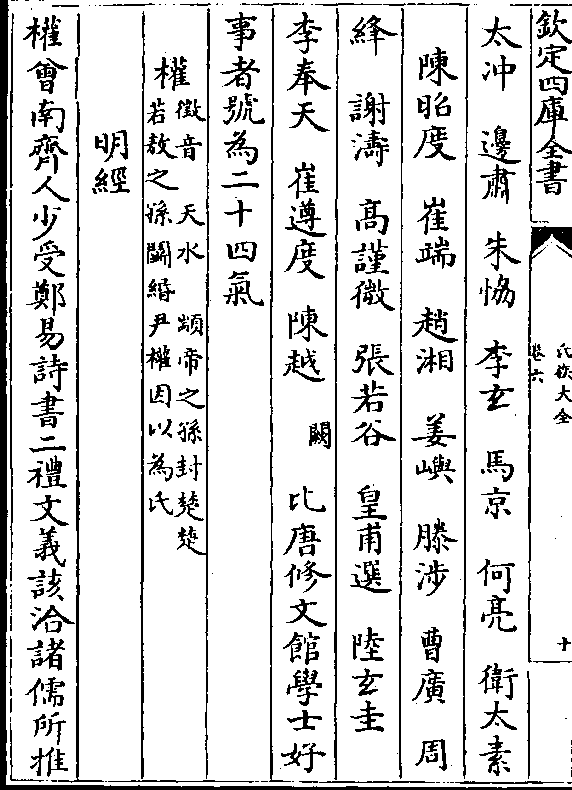 欽定四庫全書
氏族大全
卷六
十
太冲　邊肅　朱恊　李玄　馬京　何亮　衛太素
陳昭度　崔端　趙湘　姜嶼　滕涉　曹廣　周
絳　謝濤　高謹微　張若谷　皇甫選　陸玄圭
李奉天　崔遵度　陳越　闕　比唐修文館學士好
事者號為二十四氣
權
徵音　天水　顓帝之孫封楚楚
若敖之孫鬭緡尹權因以為氏
明經
權㑹南齊人少受鄭易詩書二禮文義該洽諸儒所推